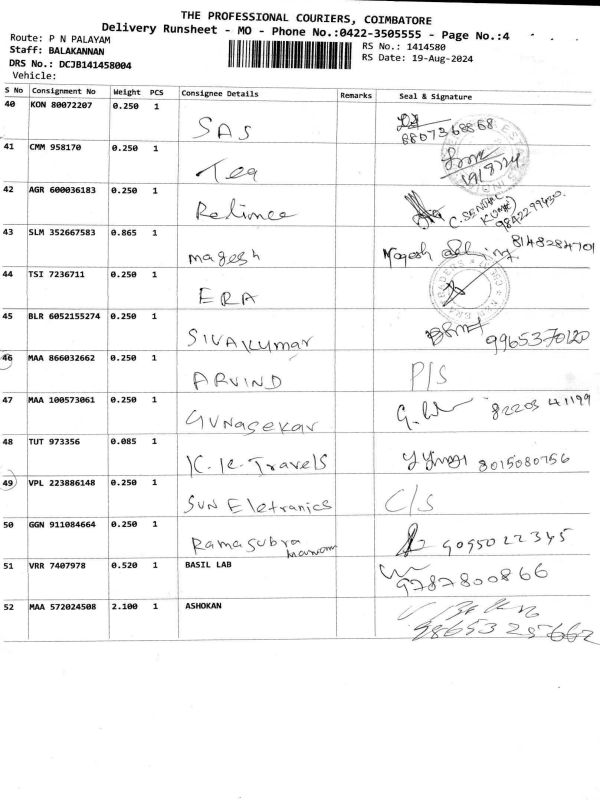 THE PROFESSIONAL COURIERS, COIMBATORE
Delivery Runsheet - MO - Phone No.:0422-3505555 - Page No.:4
Route: P N PALAYAM
Staff: BALAKANNAN
DRS No.: DCJB141458004
Vehicle:
RS No.: 1414580
RS Date: 19-Aug-2024
S No Consignment No Weight PCS Consignee Details Remarks Seal & Signature
40 KON 80072207 0.250 1 SAS 8807368868
41 CMM 958170 0.250 1 Tea 19/8/24
42 AGR 600036183 0.250 1 Relince C. SENTHIL KUMAR) 9842299430
43 SLM 352667583 0.865 1 magesh 8148284701
44 TSI 7236711 0.250 1 ERA
45 BLR 6052155274 0.250 1 SIVAKUMAR 9965370120
46 MAA 866032662 0.250 1 ARVIND P/S
47 MAA 100573061 0.250 1 GUNASEKAR 82203 41199
48 TUT 973356 0.085 1 K.K. Travels 8015080756
49 VPL 223886148 0.250 1 SUN Eletranics C/S
50 GGN 911084664 0.250 1 Ramasubra 9095022345
51 VRR 7407978 0.520 1 BASIL LAB 9787800866
52 MAA 572024508 2.100 1 ASHOKAN